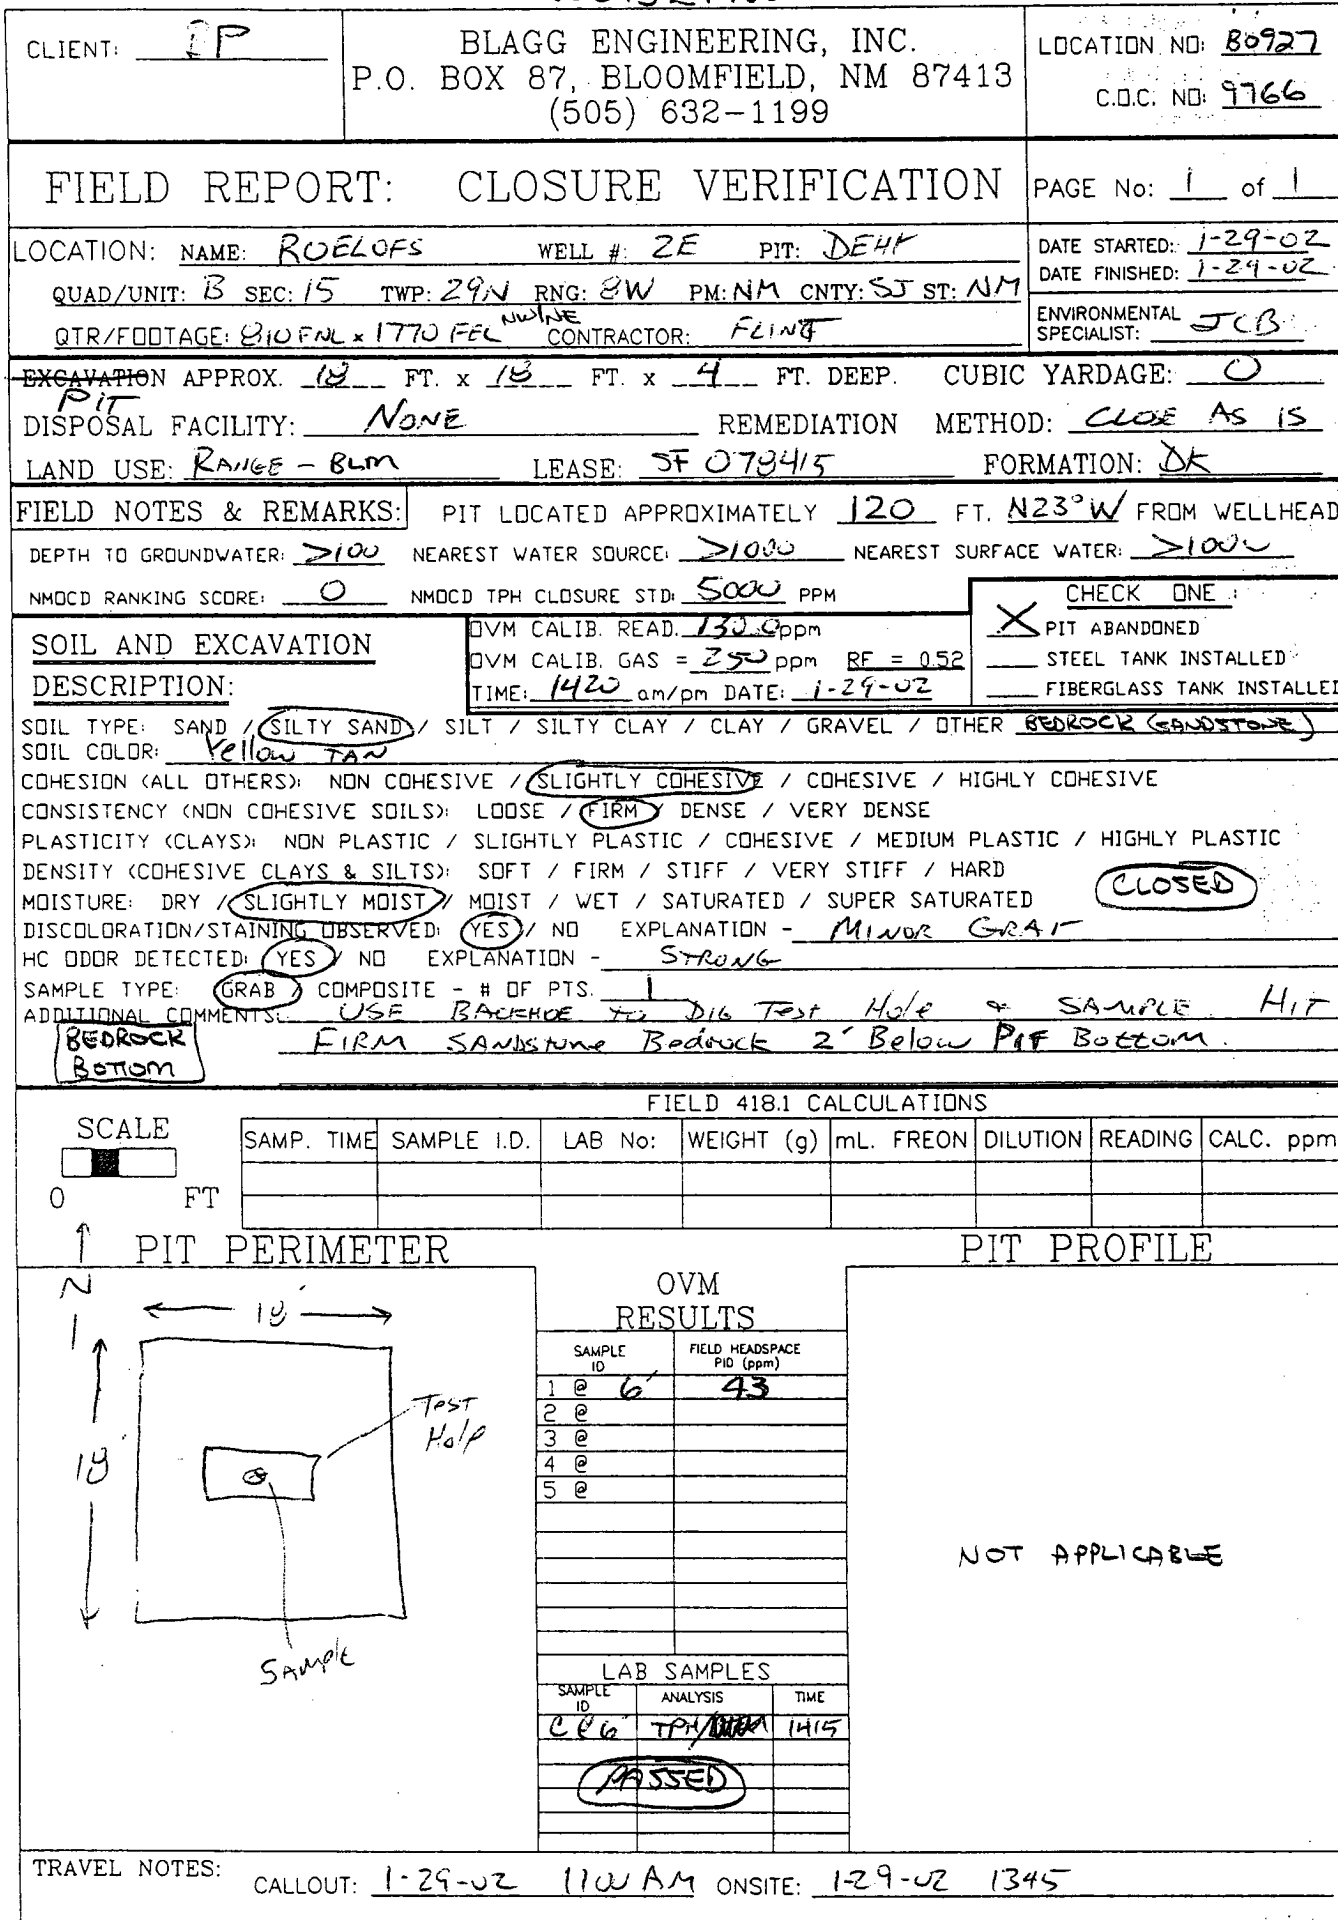 CLIENT: BP
BLAGG ENGINEERING, INC.
P.O. BOX 87, BLOOMFIELD, NM 87413
(505) 632-1199
LOCATION NO: B0927
C.O.C. NO: 9766
FIELD REPORT: CLOSURE VERIFICATION
PAGE No: 1 of 1
LOCATION: NAME: ROELOFS WELL #: 2E PIT: DEHY
QUAD/UNIT: B SEC: 15 TWP: 29N RNG: 8W PM: NM CNTY: SJ ST: NM
QTR/FOOTAGE: 810 FNL x 1770 FEL NW/NE CONTRACTOR: FLINT
DATE STARTED: 1-29-02
DATE FINISHED: 1-29-02
ENVIRONMENTAL SPECIALIST: JCB
EXCAVATION APPROX. 18 FT. x 18 FT. x 4 FT. DEEP. CUBIC YARDAGE: 0
PIT
DISPOSAL FACILITY: NONE REMEDIATION METHOD: CLOSE AS IS
LAND USE: RANGE - BLM LEASE: SF 078415 FORMATION: DK
FIELD NOTES & REMARKS: PIT LOCATED APPROXIMATELY 120 FT. N23°W FROM WELLHEAD
DEPTH TO GROUNDWATER: >100 NEAREST WATER SOURCE: >1000 NEAREST SURFACE WATER: >1000
NMOCD RANKING SCORE: 0 NMOCD TPH CLOSURE STD: 5000 PPM
CHECK ONE :
X PIT ABANDONED
STEEL TANK INSTALLED
FIBERGLASS TANK INSTALLED
SOIL AND EXCAVATION
DESCRIPTION:
OVM CALIB. READ. 130.0 ppm
OVM CALIB. GAS = 250 ppm RF = 0.52
TIME: 1420 am/pm DATE: 1-29-02
SOIL TYPE: SAND / SILTY SAND / SILT / SILTY CLAY / CLAY / GRAVEL / OTHER BEDROCK (SANDSTONE)
SOIL COLOR: Yellow TAN
COHESION (ALL OTHERS): NON COHESIVE / SLIGHTLY COHESIVE / COHESIVE / HIGHLY COHESIVE
CONSISTENCY (NON COHESIVE SOILS): LOOSE / FIRM / DENSE / VERY DENSE
PLASTICITY (CLAYS): NON PLASTIC / SLIGHTLY PLASTIC / COHESIVE / MEDIUM PLASTIC / HIGHLY PLASTIC
DENSITY (COHESIVE CLAYS & SILTS): SOFT / FIRM / STIFF / VERY STIFF / HARD
MOISTURE: DRY / SLIGHTLY MOIST / MOIST / WET / SATURATED / SUPER SATURATED
CLOSED
DISCOLORATION/STAINING OBSERVED: YES / NO EXPLANATION - MINOR GRAY
HC ODOR DETECTED: YES / NO EXPLANATION - STRONG
SAMPLE TYPE: GRAB / COMPOSITE - # OF PTS. 1
ADDITIONAL COMMENTS: USE BACKHOE TO DIG Test Hole & SAMPLE. HIT
FIRM SANDSTONE Bedrock 2' Below PIT Bottom.
BEDROCK
BOTTOM
FIELD 418.1 CALCULATIONS
SCALE
0 FT
SAMP. TIME SAMPLE I.D. LAB No: WEIGHT (g) mL. FREON DILUTION READING CALC. ppm
N
PIT PERIMETER
PIT PROFILE
18'
18'
Test
Hole
Sample
OVM
RESULTS
SAMPLE ID FIELD HEADSPACE PID (ppm)
1 @ 6' 43
2 @
3 @
4 @
5 @
NOT APPLICABLE
LAB SAMPLES
SAMPLE ID ANALYSIS TIME
C@6' TPH/ 1415
PASSED
TRAVEL NOTES: CALLOUT: 1-29-02 1100 AM ONSITE: 1-29-02 1345